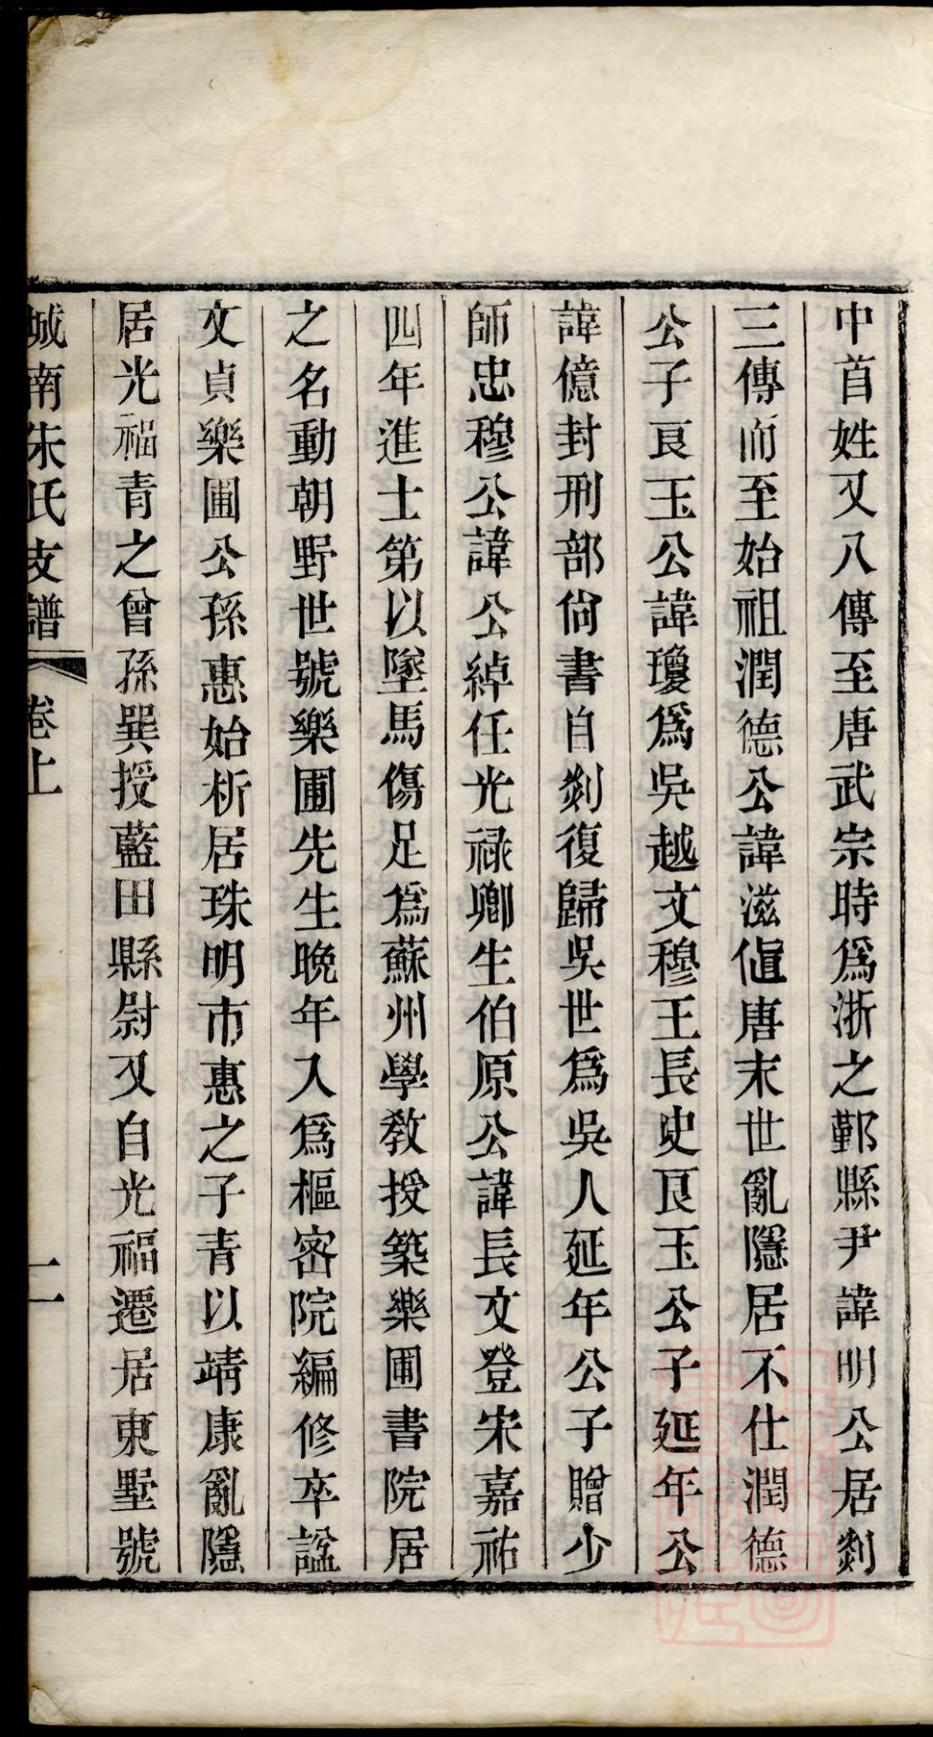 中首姓又八傳至唐武宗時爲浙之鄞縣尹諱明公居剡
三傳而至始祖潤德公諱滋値唐末世亂隱居不仕潤德
公子良玉公諱瓊爲吳越文穆王長史良玉公子延年公
諱億封刑部尙書自剡復歸吳世爲吳人延年公子贈少
師忠穆公諱公綽任光祿卿生伯原公諱長文登宋嘉祐
四年進士第以墜馬傷足爲蘇州學教授築樂圃書院居
之名動朝野世號樂圃先生晚年入爲樞密院編修卒諡
文貞樂圃公孫惠始析居珠明市惠之子青以靖康亂隱
居光福青之曾孫巽授藍田縣尉又自光福遷居東墅號
城南朱氏支譜 卷上 二